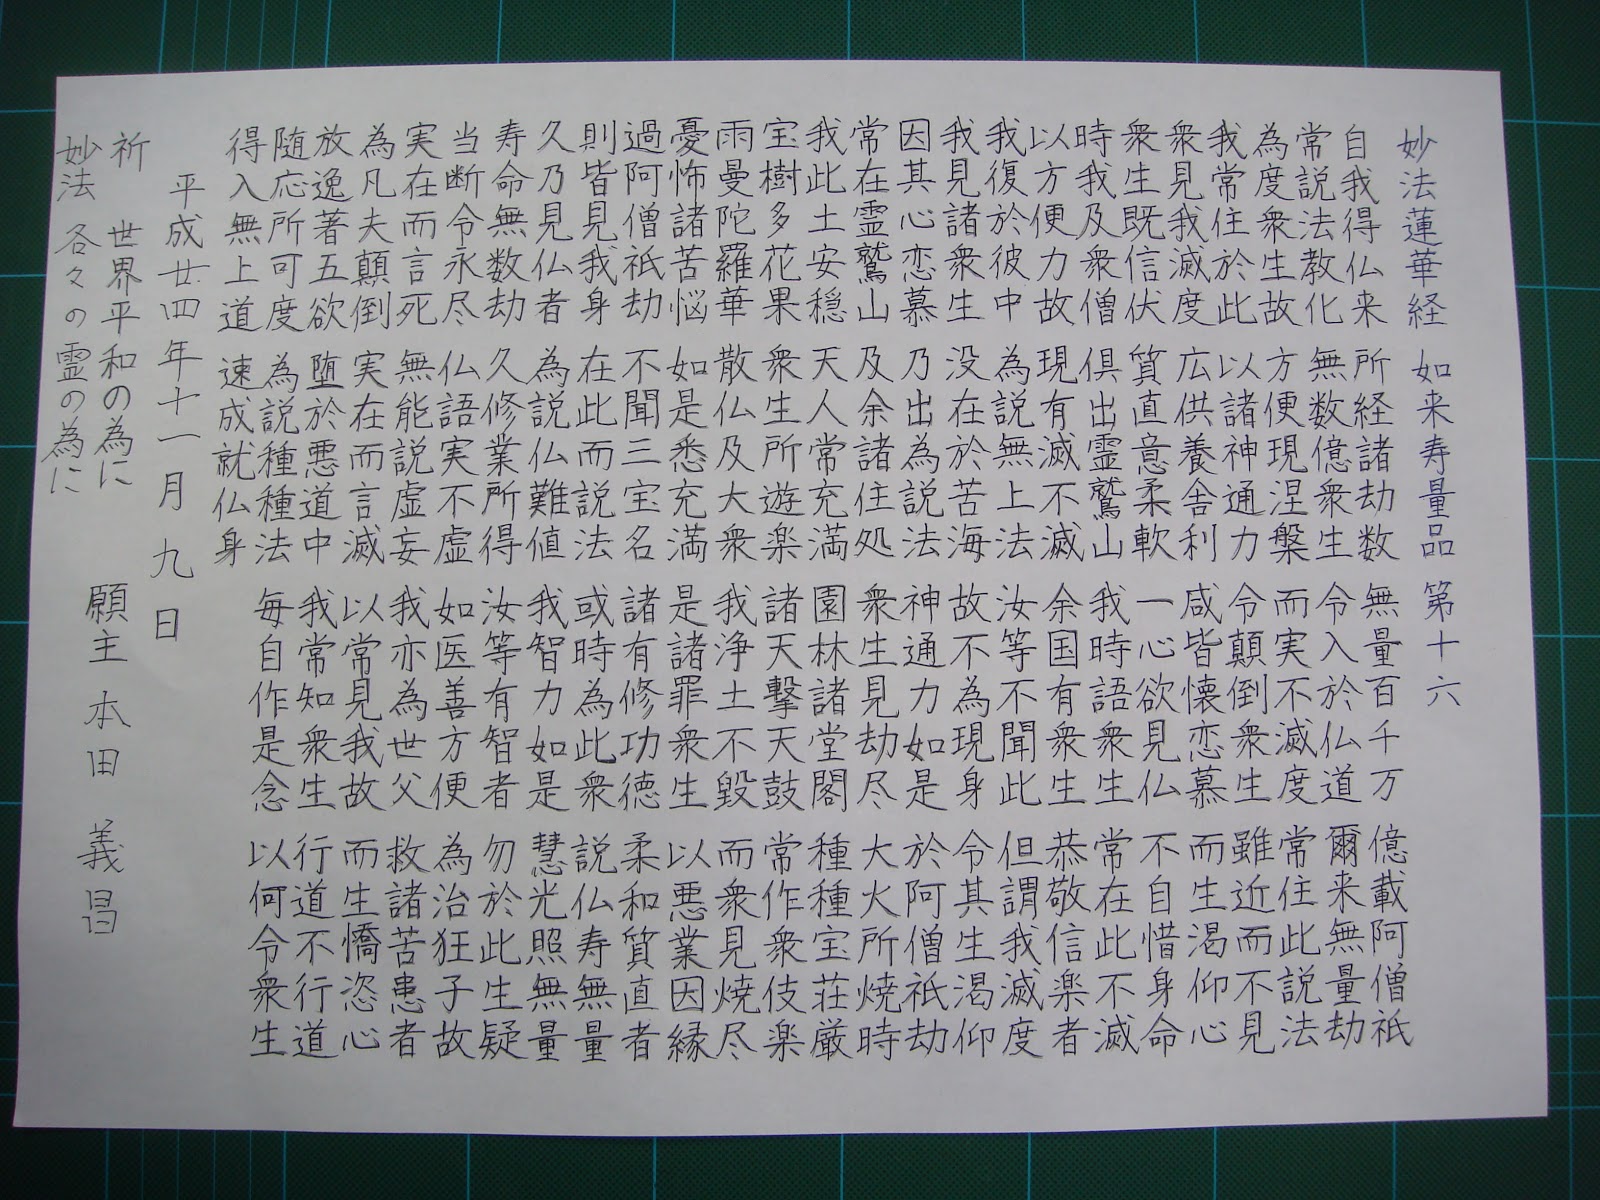 妙法蓮華経 如来寿量品 第十六
自我得仏来 所経諸劫数 無量百千万 億載阿僧祇
常説法教化 無数億衆生 令入於仏道 爾来無量劫
為度衆生故 方便現涅槃 而実不滅度 常住此説法
我常住於此 以諸神通力 令顛倒衆生 雖近而不見
衆見我滅度 広供養舎利 咸皆懐恋慕 而生渇仰心
衆生既信伏 質直意柔軟 一心欲見仏 不自惜身命
時我及衆僧 倶出霊鷲山 我時語衆生 常在此不滅
以方便力故 現有滅不滅 余国有衆生 恭敬信楽者
我復於彼中 為説無上法 汝等不聞此 但謂我滅度
我見諸衆生 没在於苦海 故不為現身 令其生渇仰
因其心恋慕 乃出為説法 神通力如是 於阿僧祇劫
常在霊鷲山 及余諸住処 衆生見劫尽 大火所焼時
我此土安穏 天人常充満 園林諸堂閣 種種宝荘厳
宝樹多花果 衆生所遊楽 諸天撃天鼓 常作衆伎楽
雨曼陀羅華 散仏及大衆 我浄土不毀 而衆見焼尽
憂怖諸苦悩 如是悉充満 是諸罪衆生 以悪業因縁
過阿僧祇劫 不聞三宝名 諸有修功徳 柔和質直者
則皆見我身 在此而説法 或時為此衆 説仏寿無量
久乃見仏者 為説仏難値 我智力如是 慧光照無量
寿命無数劫 久修業所得 汝等有智者 勿於此生疑
当断令永尽 仏語実不虚 如医善方便 為治狂子故
実在而言死 無能説虚妄 我亦為世父 救諸苦患者
為凡夫顛倒 実在而言滅 以常見我故 而生憍恣心
放逸著五欲 堕於悪道中 我常知衆生 行道不行道
随応所可度 為説種種法 毎自作是念 以何令衆生
得入無上道 速成就仏身
平成廿四年十一月九日
祈 世界平和の為に 願主 本田 義昌
妙法 各々の霊の為に